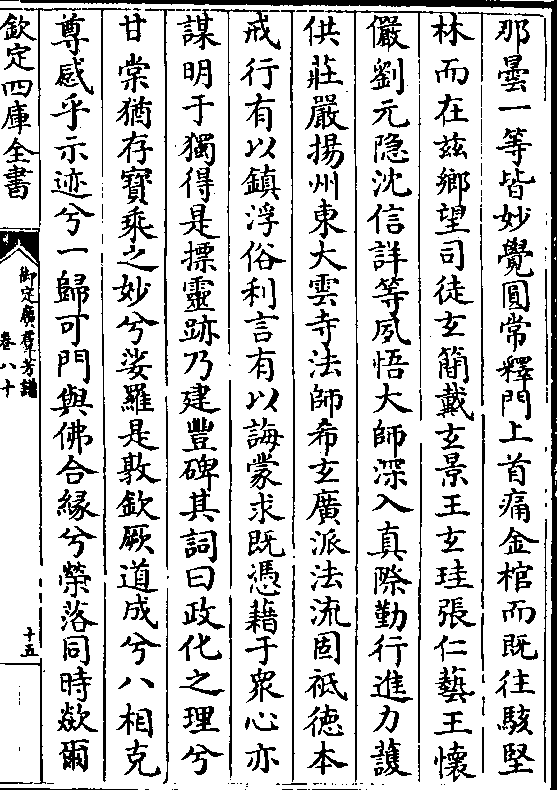 那曇一等皆妙覺圓常釋門上首痛金棺而既往駭堅
林而在兹鄉望司徒玄簡戴玄景王玄珪張仁藝王懷
儼劉元隐沈信詳等夙悟大師深入真際勤行進力護
供莊嚴揚州東大雲寺法師希玄廣派法流固祇徳本
戒行有以鎮浮俗利言有以誨蒙求既憑藉于衆心亦
謀明于獨得是摽靈跡乃建豐碑其詞曰政化之理兮
甘棠猶存寳乘之妙兮娑羅是敦欽厥道成兮八相克
尊感乎示迹兮一歸可門與佛合緣兮榮落同時欻爾
欽定四庫全書
御定廣羣芳譜
卷八十
十五